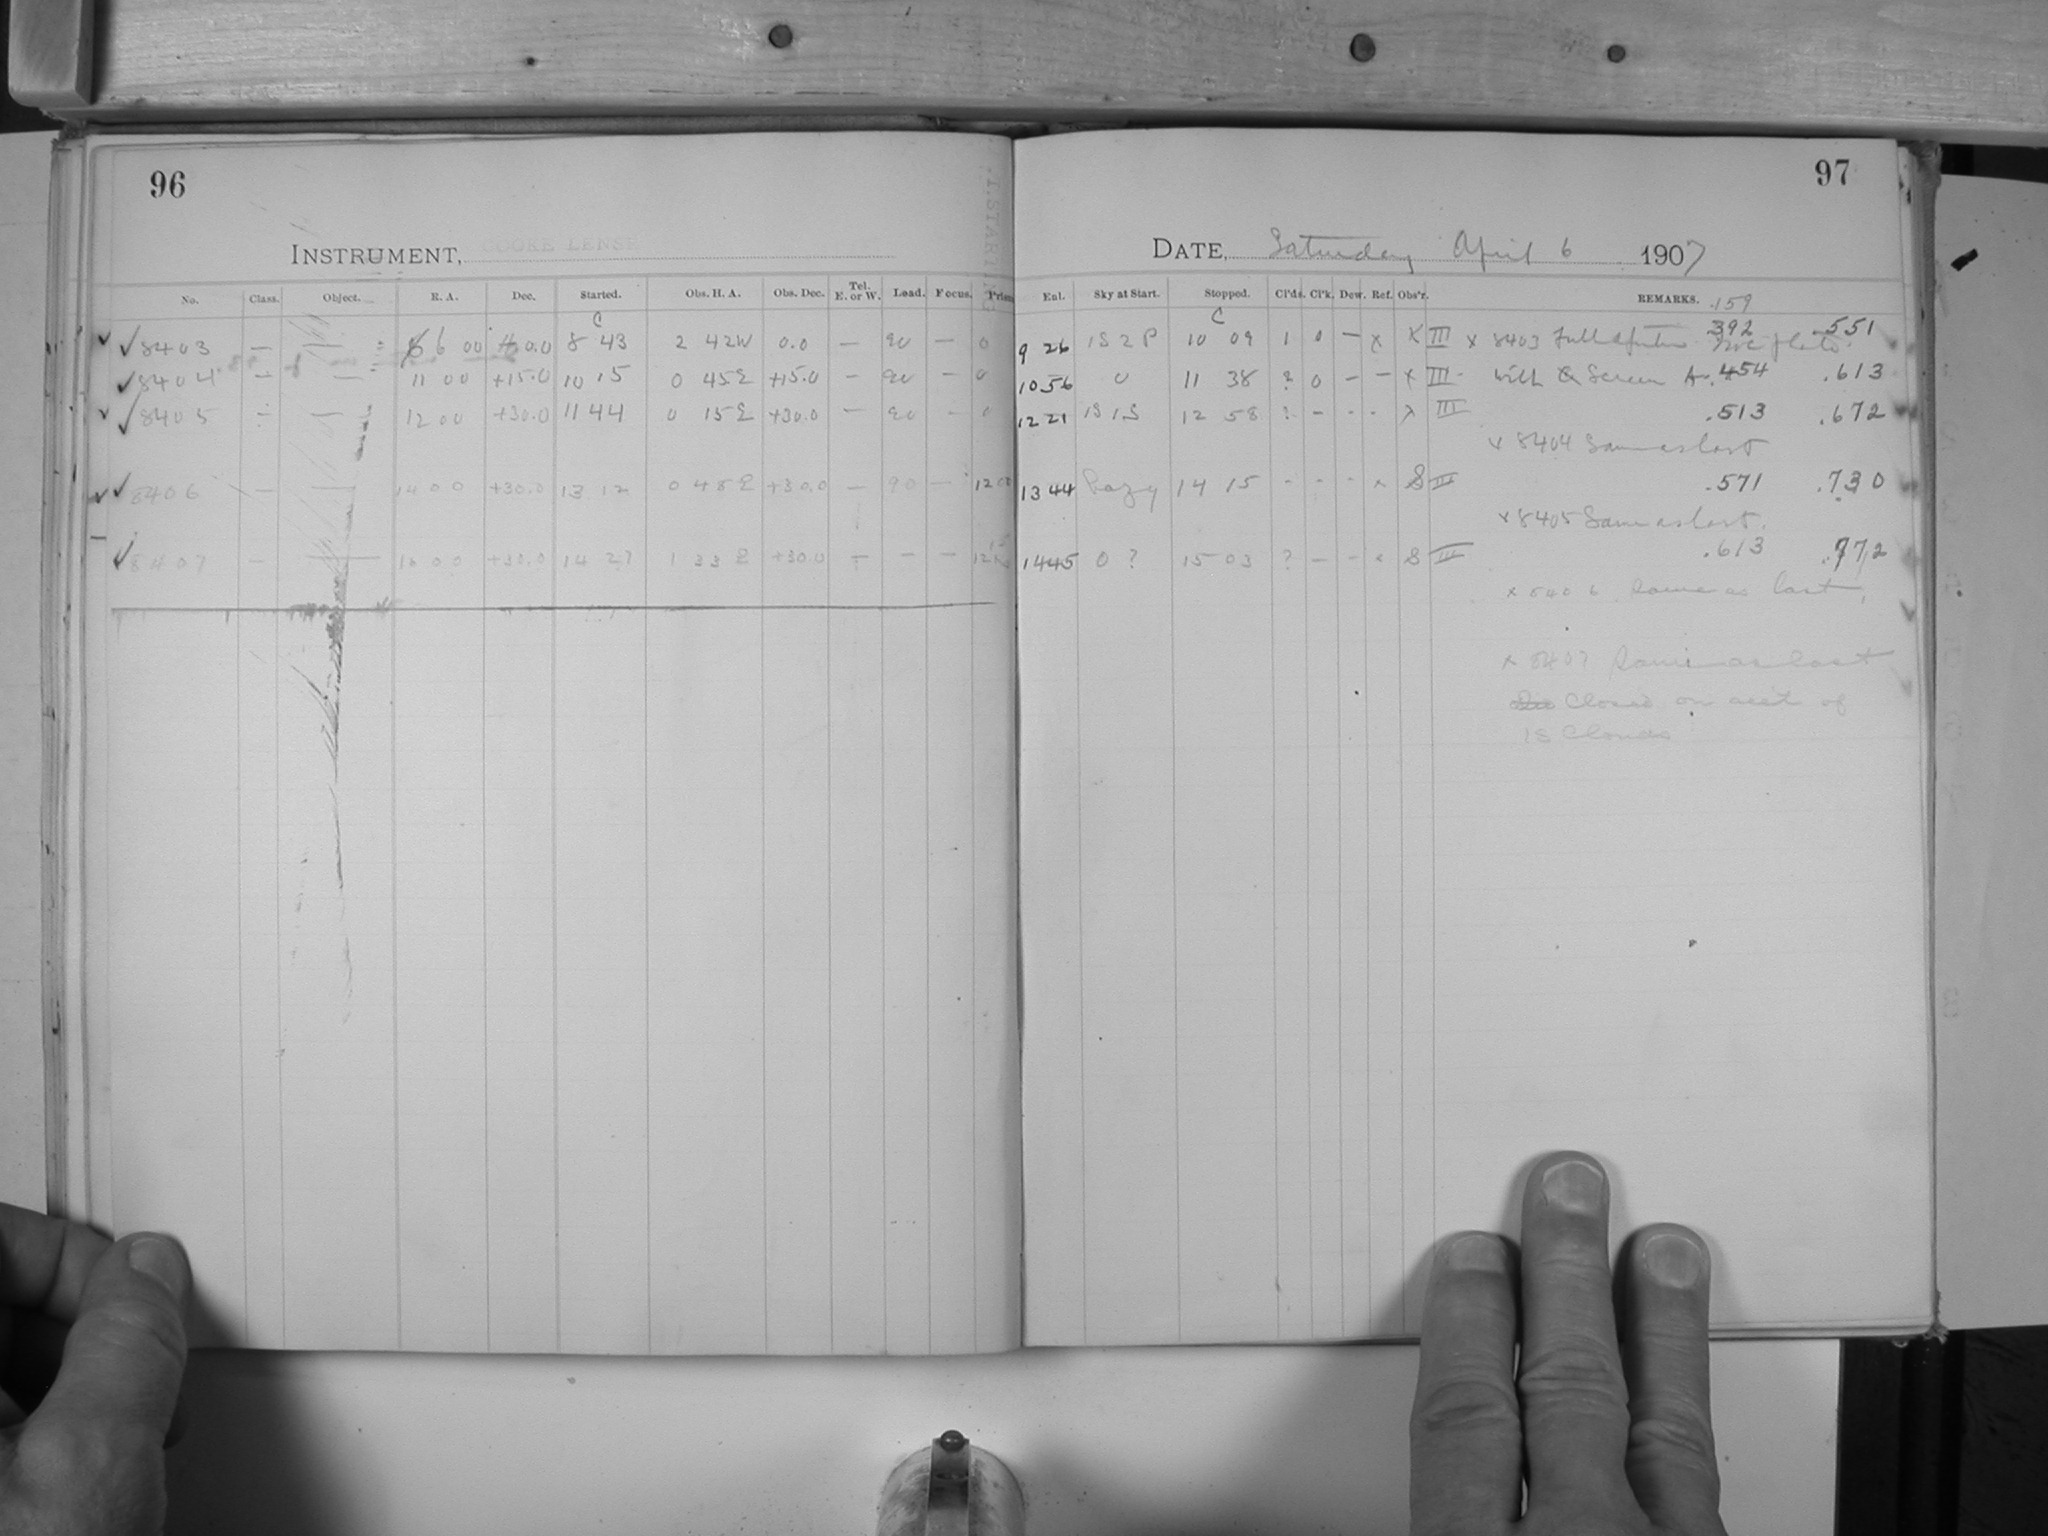 96
INSTRUMENT, COOKE LENSE
No. Class. Object. R. A. Dec. Started. Obs. H. A. Obs. Dec. Tel. E. or W. Load. Focus.
C
8403 — 6 00 0.0 8 43 2 42W 0.0 — 90 — 0
8404 — 11 00 +15.0 10 15 0 45E +15.0 — 90 — 0
8405 — 12 00 +30.0 11 44 0 15E +30.0 — 90 — 0
8406 — 14 00 +30.0 13 12 0 48E +30.0 — 90 —
8407 — 16 00 +30.0 14 27 1 33E +30.0 — — —
97
DATE, Saturday April 6 1907
Ent. Sky at Start. Stopped. Cl'ds. Cl'k. Dew. Ref. Obs'r. REMARKS. .159
C
9 26 1S 2 P 10 09 1 0 — x X III x 8403 Full 392 .551
10 56 0 11 38 ? 0 — — x III with Screen .454 .613
12 21 1S 1S 12 58 ? - - - x III .513 .672
x 8404 Same as last
13 44 14 15 - - - x S III .571 .730
x 8405 Same as last.
14 45 0 ? 15 03 ? — - x S III .613 .772
x 8406 Same as last,
x 8407 Same as last
Closed on acct of
1S Clouds